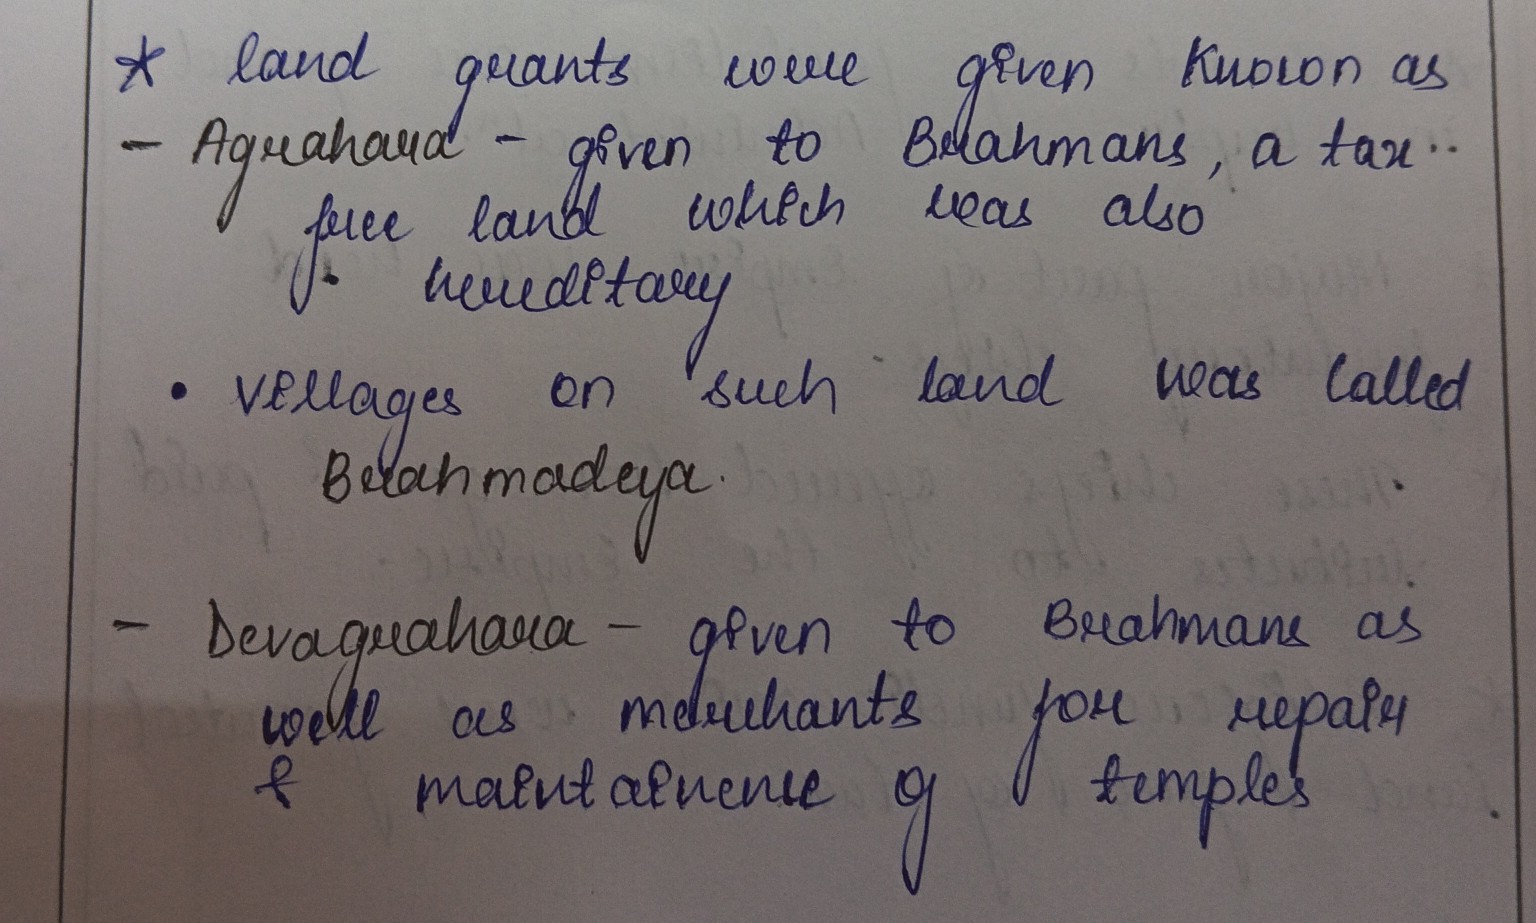 * land grants were given known as
- Agrahara - given to Brahmans, a tax
free land which was also
hereditary
• villages on such land was called
Brahmadeya.
- Devagrahara - given to Brahmans as
well as merchants for repair
& maintainence of temples